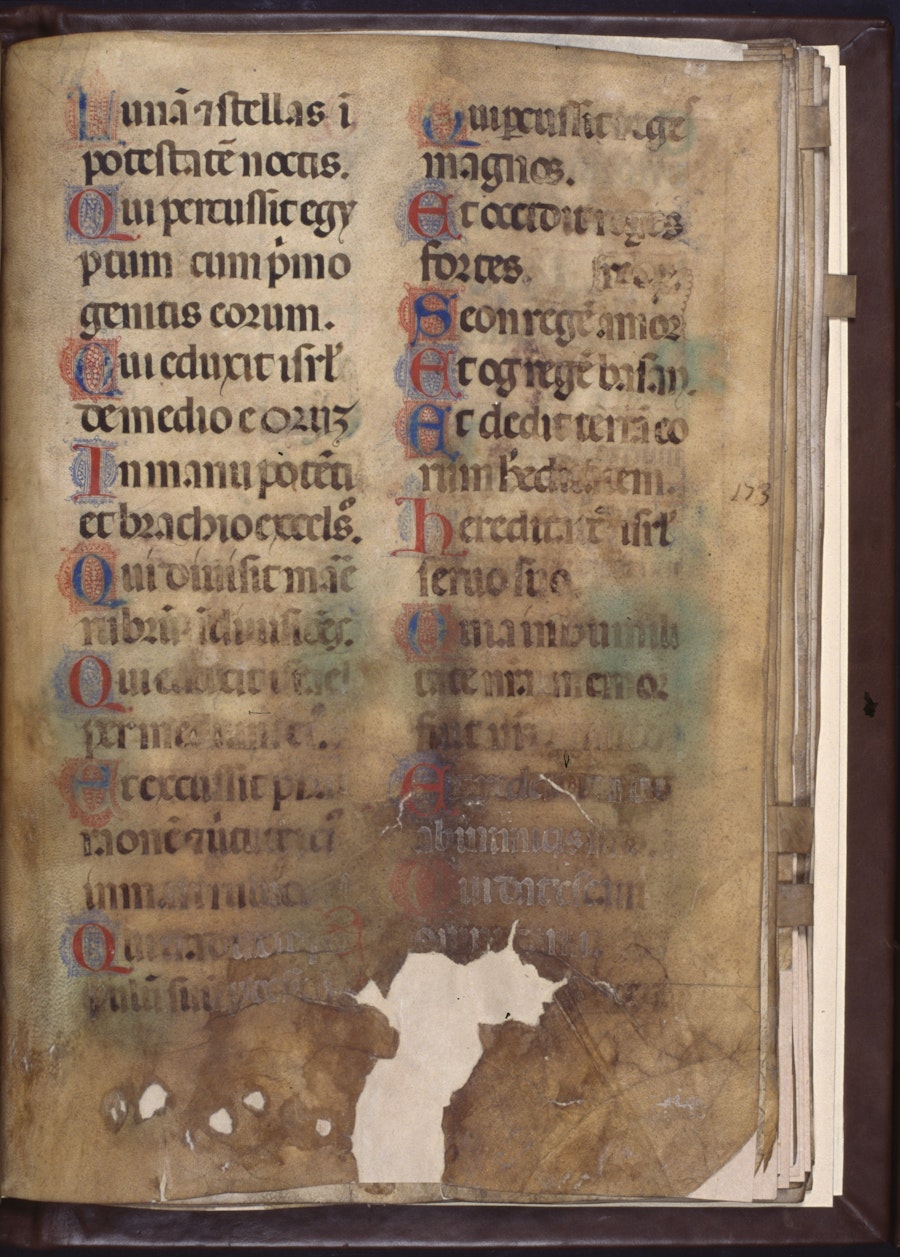 Lunā ⁊ stellas ī
potestatē noctis.
Qui percussit egy
ptum cum pͥmo
genitis eorum.
Qui eduxit isrł
de medio eoruꝫ
In manu potēti
et brachio excels᷒.
Qui diuisit maꝛ̄e
rubrū ī diuisiões.
Qui eduxit israel
per medium ei᷒.
Et excussit phara
monē ⁊ ūtutē ei᷒
in mari rubro
Qui traduxit po
pulū suū
Qui ꝑcussit reges
magnos.
Et occidit reges
fortes.
Seon regē amor
Et og regē basan.
Et dedit terrā eo
rum hͤditatem.
Hereditatē isrł
seruo suo.
Quia in humili
tate nr̄a memor
fuit nr̄i
Et redemit nos
ab inimicis
Qui dat escam
omni carni.
173